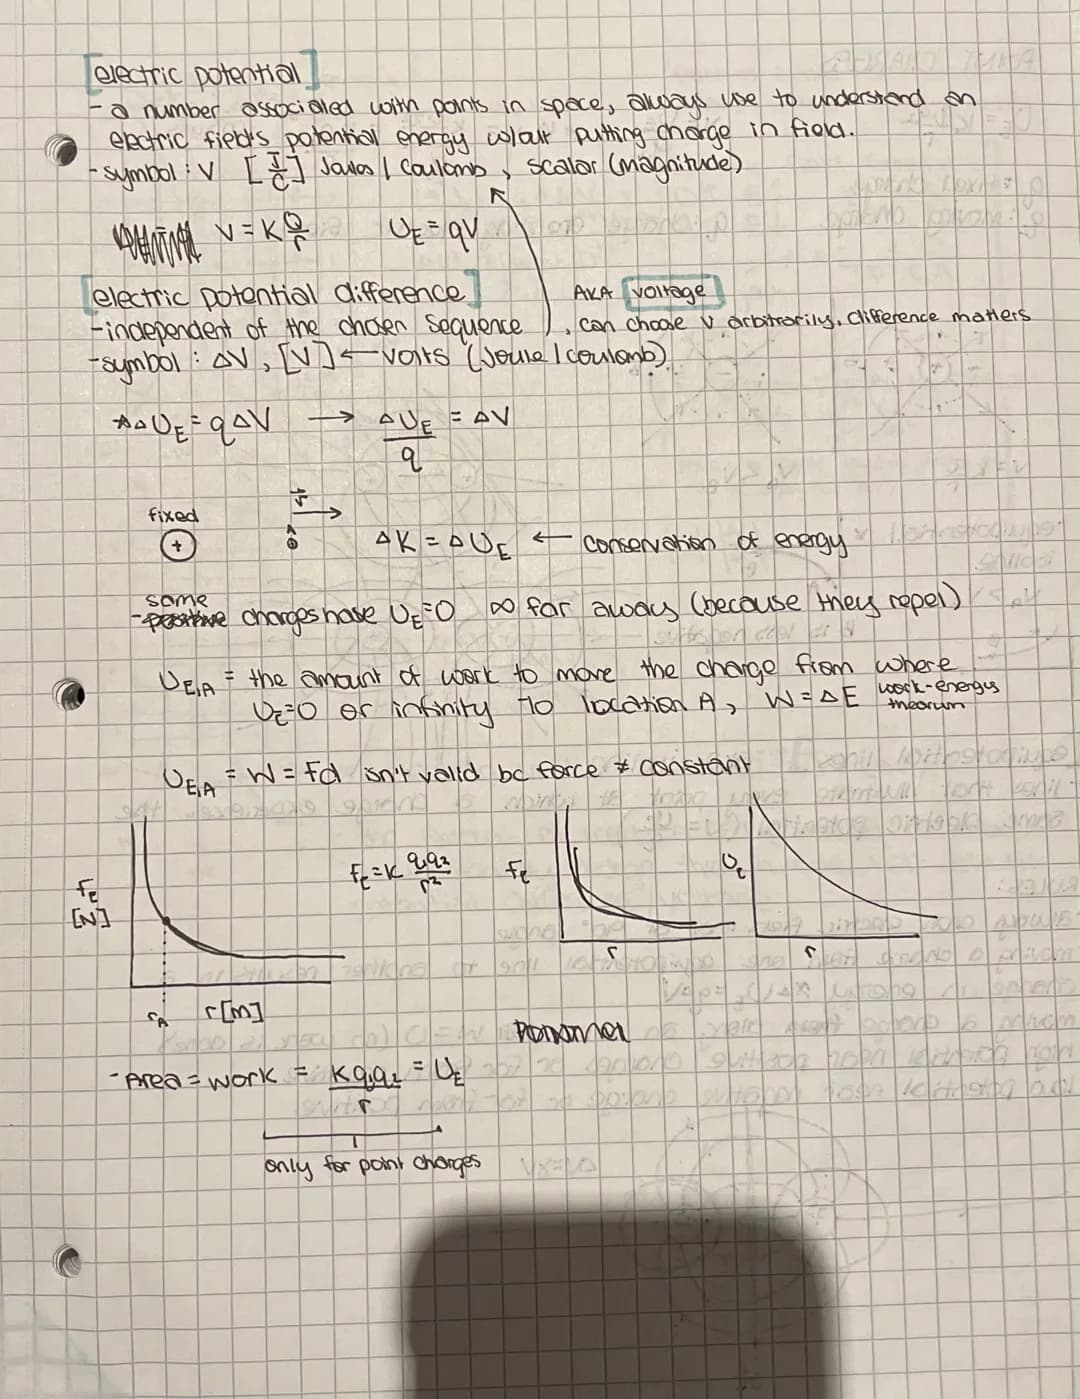 [electric potential]
- a number associated with points in space, always use to understand an
electric field's potential energy w/out putting charge in field.
- symbol : V [J/C] Joules / Coulomb , scalar (magnitude)
V = K Q/r U_E = qV
[electric potential difference] AKA [voltage]
- independent of the chosen sequence , can choose V arbitrarily, difference matters
- symbol : ΔV , [V] ← volts (Joule / coulomb)
ΔU_E = qΔV → ΔU_E/q = ΔV
fixed v
+ A ΔK = ΔU_E ← conservation of energy
same
- charges have U_E=0 ∞ far away (because they repel)
U_E,A = the amount of work to move the charge from where
U_E=0 or infinity to location A, W = ΔE work-energy theorum
U_E,A = W = Fd isn't valid bc force ≠ constant
F_E [N] F_E = K q₁q₂/r² F_E U_E
r r
r_A r[m]
- Area = work = Kq₁q₂/r = U_E
only for point charges